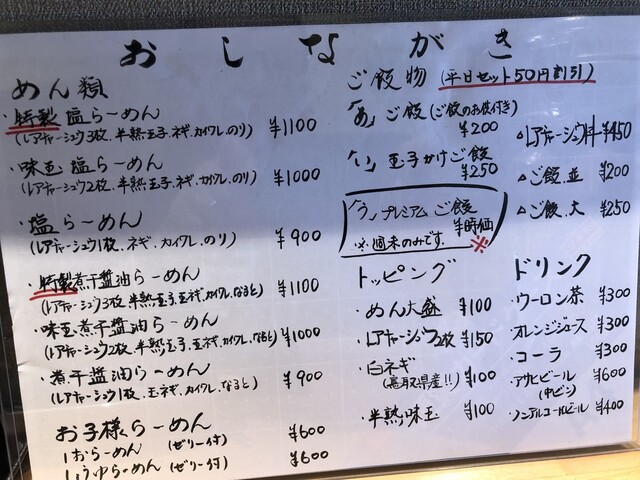 おしながき
めん類
・特製塩らーめん ¥1100
(レアチャーシュウ3枚、半熟玉子、ネギ、カイワレ、のり)
・味玉塩らーめん ¥1000
(レアチャーシュウ2枚、半熟玉子、ネギ、カイワレ、のり)
・塩らーめん ¥900
(レアチャーシュウ1枚、ネギ、カイワレ、のり)
・特製煮干醤油らーめん ¥1100
(レアチャーシュウ3枚、半熟玉子、玉ネギ、カイワレ、なると)
・味玉煮干醤油らーめん ¥1000
(レアチャーシュウ2枚、半熟玉子、玉ネギ、カイワレ、なると)
・煮干醤油らーめん ¥900
(レアチャーシュウ1枚、玉ネギ、カイワレ、なると)
お子様らーめん
しおらーめん (ゼリー付) ¥600
しょうゆらーめん (ゼリー付) ¥600
ご飯物 (平日セット50円割引)
「あ」ご飯 (ご飯のお供付き)
¥200
「い」玉子かけご飯
¥250
「う」プレミアムご飯
¥時価
※週末のみです。※
△レアチャーシュウ丼 ¥450
△ご飯、並 ¥200
△ご飯、大 ¥250
トッピング
・めん大盛 ¥100
・レアチャーシュウ2枚 ¥150
・白ネギ ¥100
(鳥取県産!!)
・半熟味玉 ¥100
ドリンク
・ウーロン茶 ¥300
・オレンジジュース ¥300
・コーラ ¥300
・アサヒビール ¥600
(中ビン)
・ノンアルコールビール ¥400